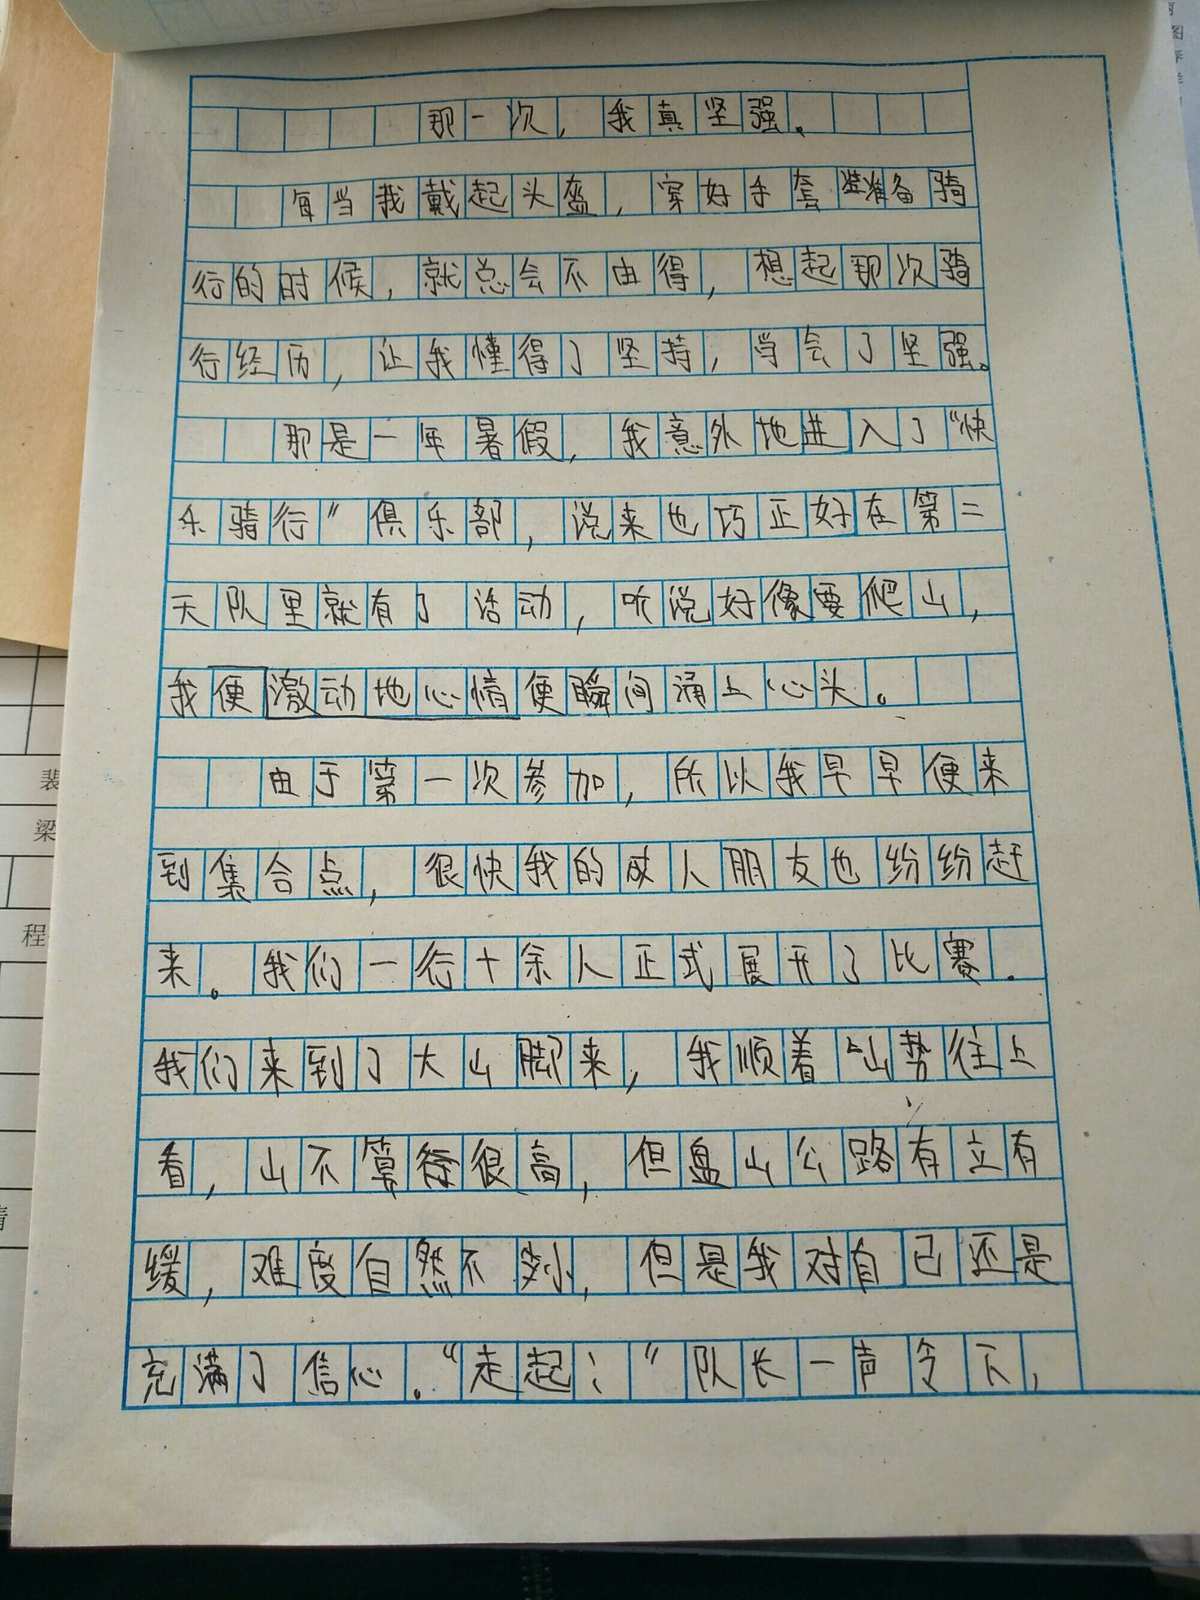 那一次，我真坚强。
每当我戴起头盔，穿好手套准备骑
行的时候，就总会不由得，想起那次骑
行经历，让我懂得了坚持，学会了坚强。
那是一年暑假，我意外地进入了“快
乐骑行”俱乐部，说来也巧正好在第二
天队里就有了活动，听说好像要爬山，
我便激动地心情便瞬间涌上心头。
由于第一次参加，所以我早早便来
到集合点，很快我的成人朋友也纷纷赶
来。我们一行十余人正式展开了比赛.
我们来到了大山脚来，我顺着山势往上
看，山不算很高，但盘山公路有立有
缓，难度自然不小，但是我对自己还是
充满了信心。“走起；”队长一声令下，
裴
梁
程